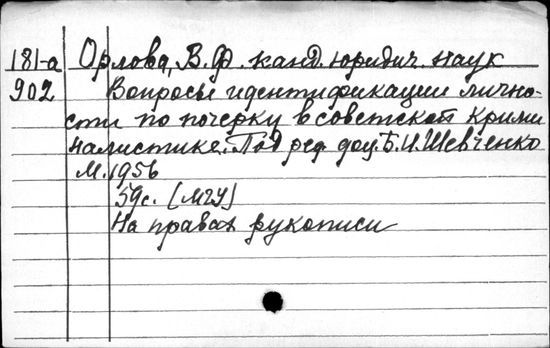 181-а Орлова, В.Ф. канд. юридич. наук
902 Вопросы идентификации лично-
сти по почерку в советской крими
налистике. Под ред. доц. Б.И. Шевченко
М. 1956
59с. (МГУ)
На правах рукописи